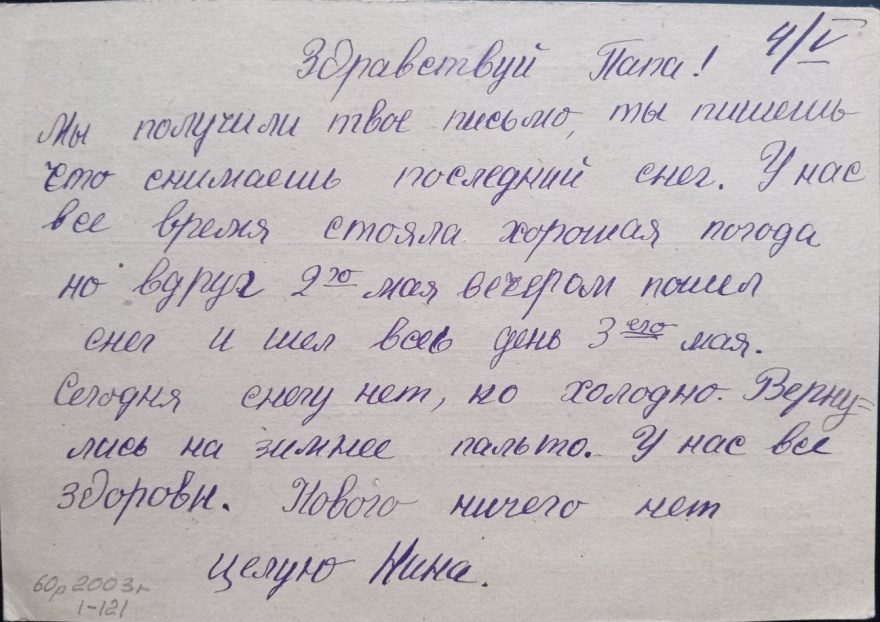 4/V
Здравствуй Папа!
Мы получили твое письмо, ты пишешь
что снимаешь последний снег. У нас
все время стояла хорошая погода
но вдруг 2го мая вечером пошел
снег и шел весь день 3его мая.
Сегодня снегу нет, но холодно. Верну=
лись на зимнее пальто. У нас все
здоровы. Нового ничего нет
целую Нина.
60р 2003г
1-121